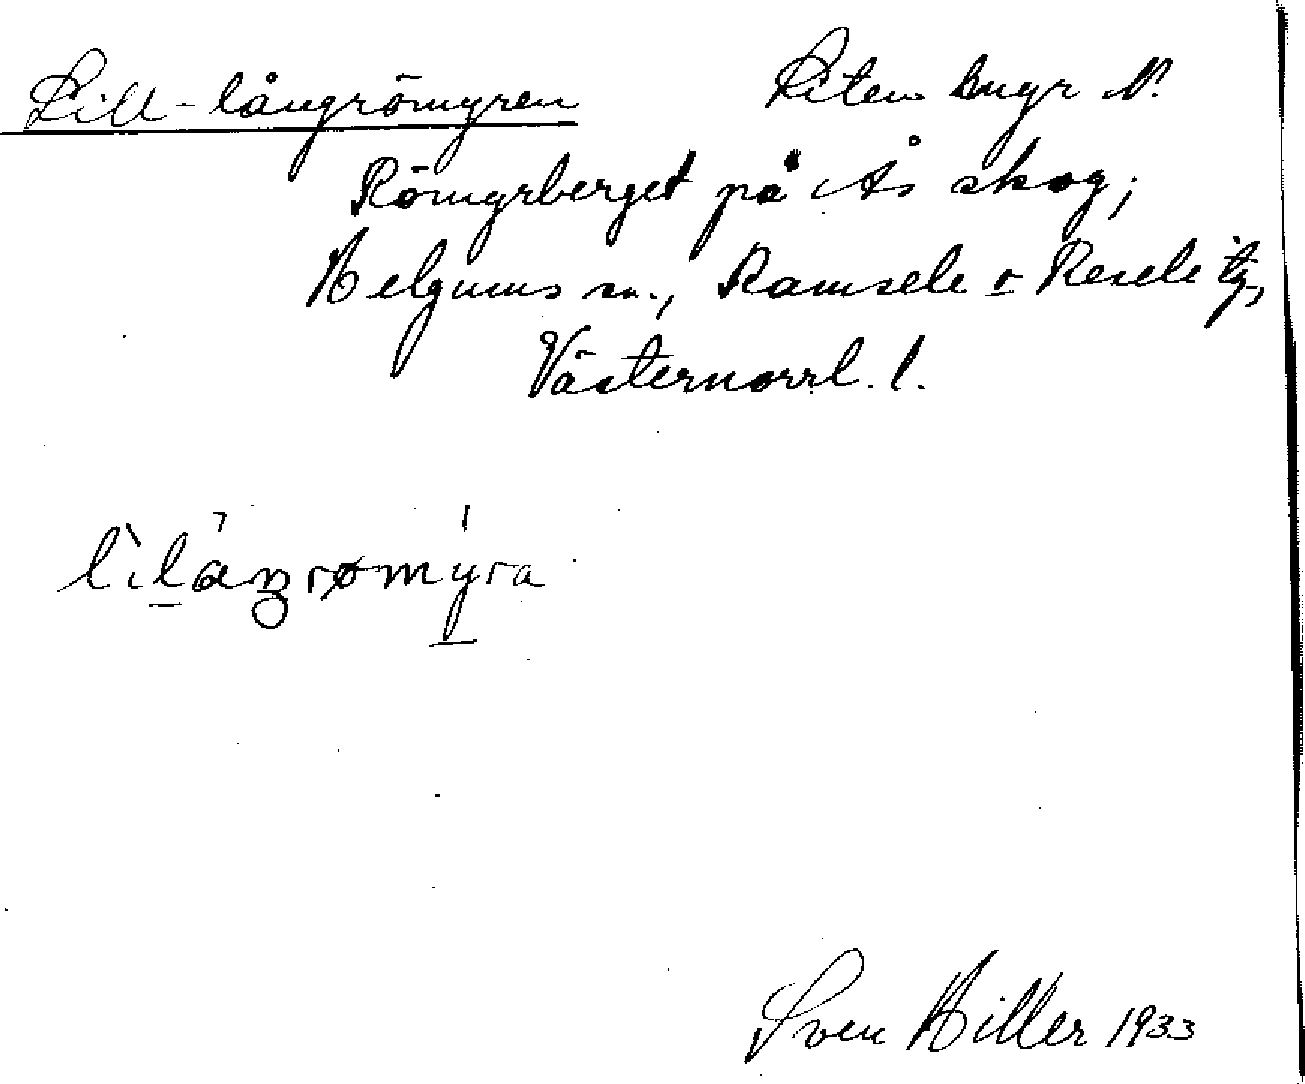 Lill-långrömyren Liten bmyr N.
Römyrberget på Ås skog;
Helgums sn., Ramsele o Resele tg,
Västernorrl. l.
lìlaŋrømýra
Sven Hiller 1933